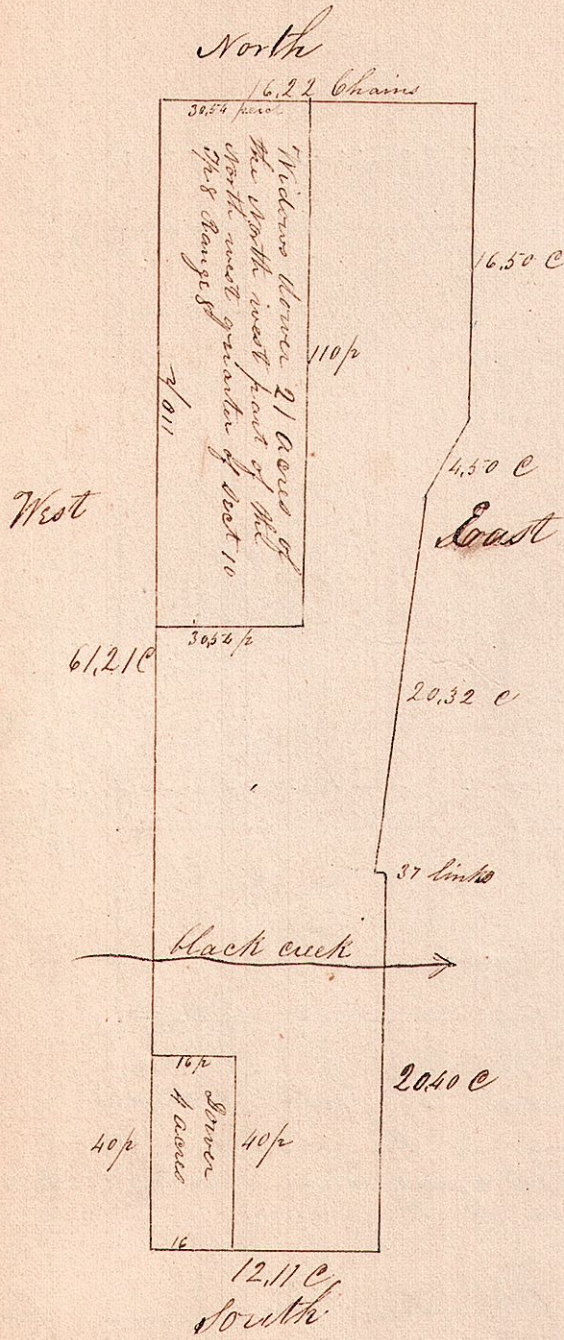 North
16,22 Chains
30,54 perch
Widows dower 21 acres of
the North west part of the
North west quarter of Sect 10
Tp 8 Range 8
110 p
110 p
16,50 C
4,50 C
West
East
30,54 p
61,21 C
20,32 C
37 links
black creek
16 p
Dower
4 acres
40 p
40 p
20,40 C
16
12,11 C
South